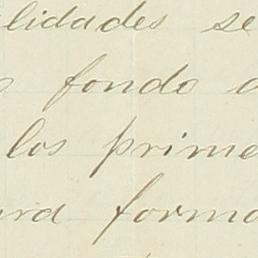 lidades se
fondo
los prime
ura forma